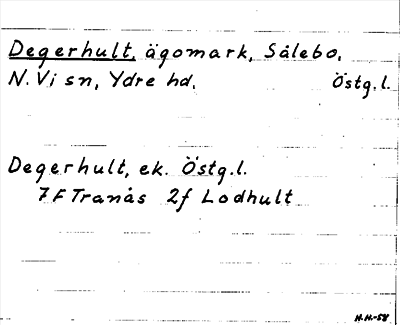 Degerhult, ägomark, Sålebo,
N. Vi sn, Ydre hd, Östg.l.
Degerhult, ek. Östg.l.
7F Tranås 2f Lodhult
H.H.-58